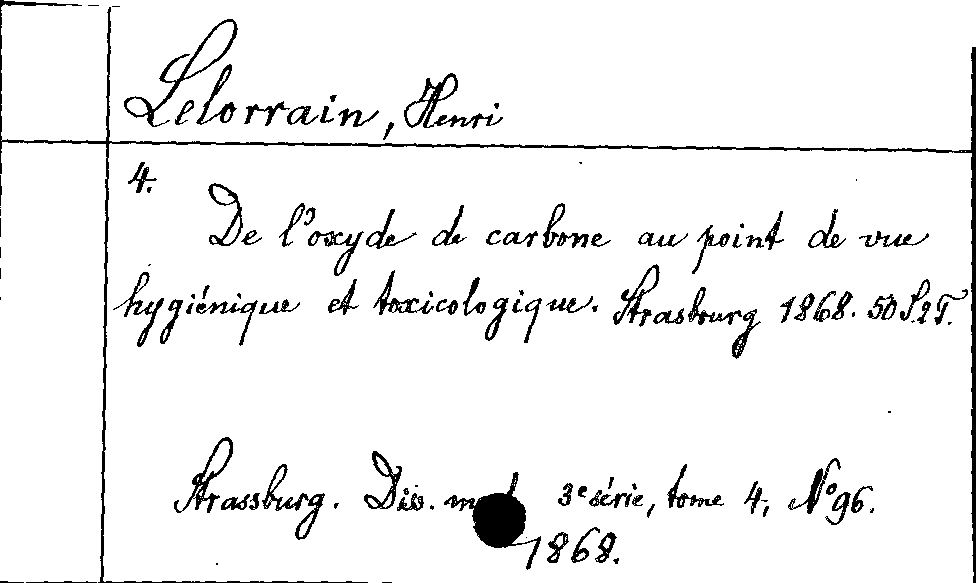 Lelorrain, Henri
4.
De l'oxyde de carbone au point de vue
hygiénique et toxicologique. Strasbourg 1868. 50 S. 2 T.
Strassburg. Dis. 3e série, tome 4, No 96.
1868.